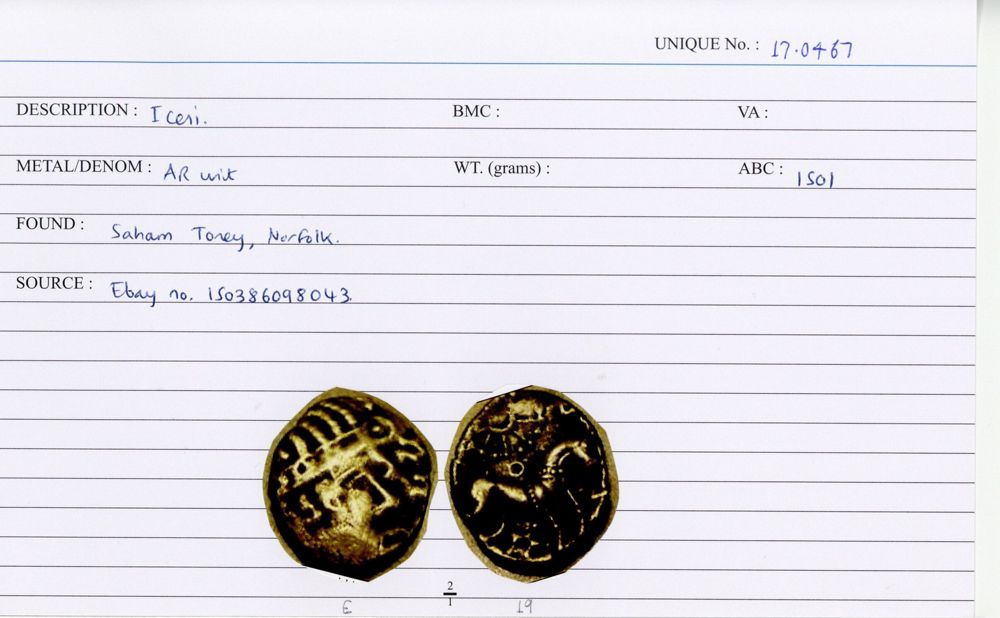 UNIQUE No. : 17.0467
DESCRIPTION : Iceni. BMC : VA :
METAL/DENOM : AR unit WT. (grams) : ABC : 1501
FOUND : Saham Toney, Norfolk.
SOURCE : Ebay no. 150386098043.
2
1
E 19